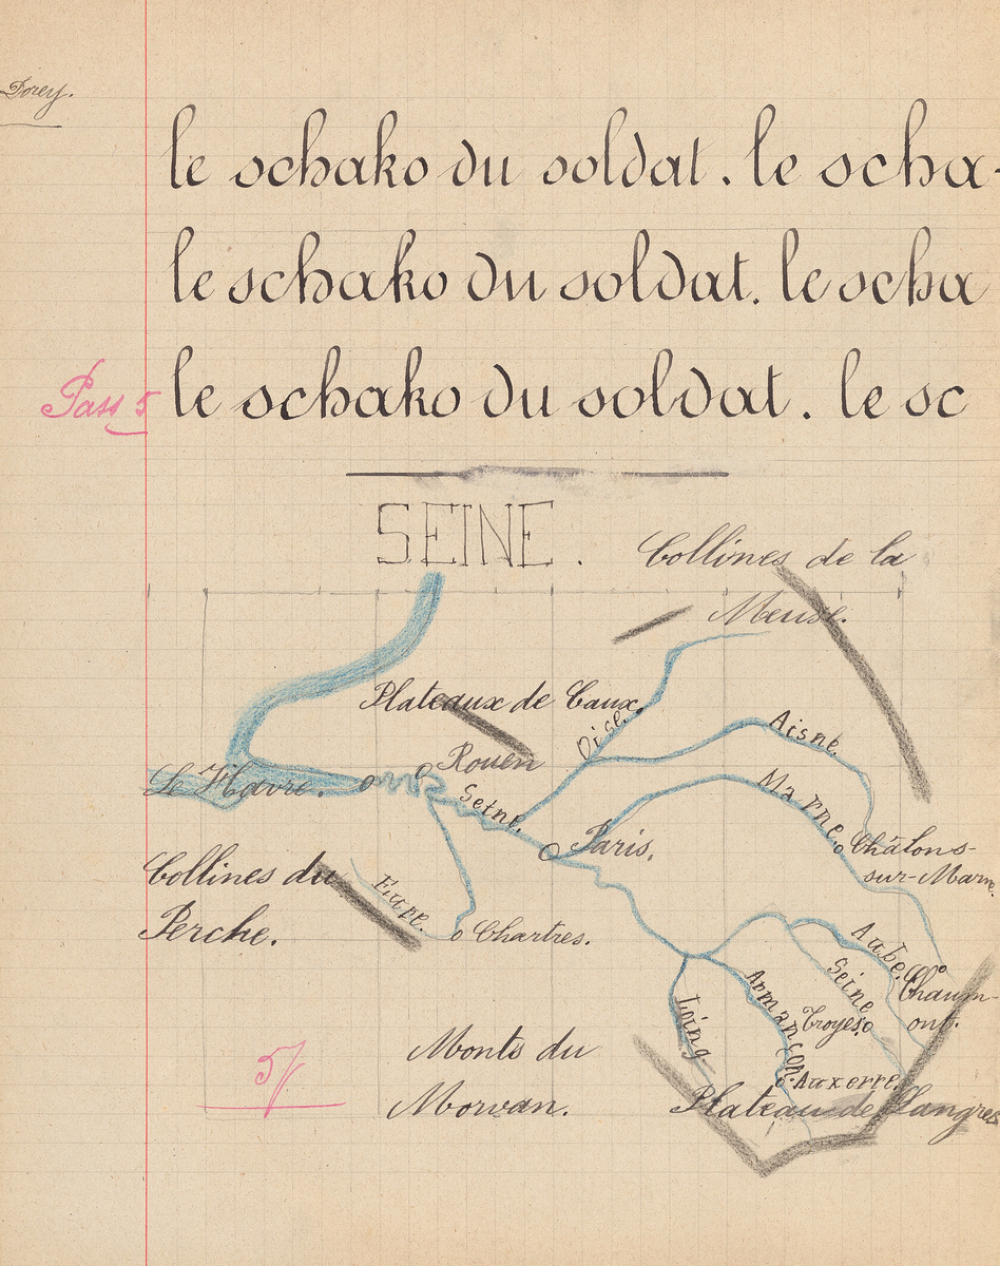 Dorey.
le schako du soldat. le scha-
le schako du soldat. le scha
Pass 5
le schako du soldat. le sc
SEINE.
Collines de la
Meuse.
Plateaux de Caux.
Oise.
Aisne.
Rouen
Le Havre.
Seine.
Marne.
Paris.
Châlons-
sur-Marne.
Collines du
Eure.
Perche.
Chartres.
Aube.
Seine
Chaum-
ont.
Armançon
Loing
Troyes.
Monts du
Auxerre.
Morvan.
Plateau de Langres
5